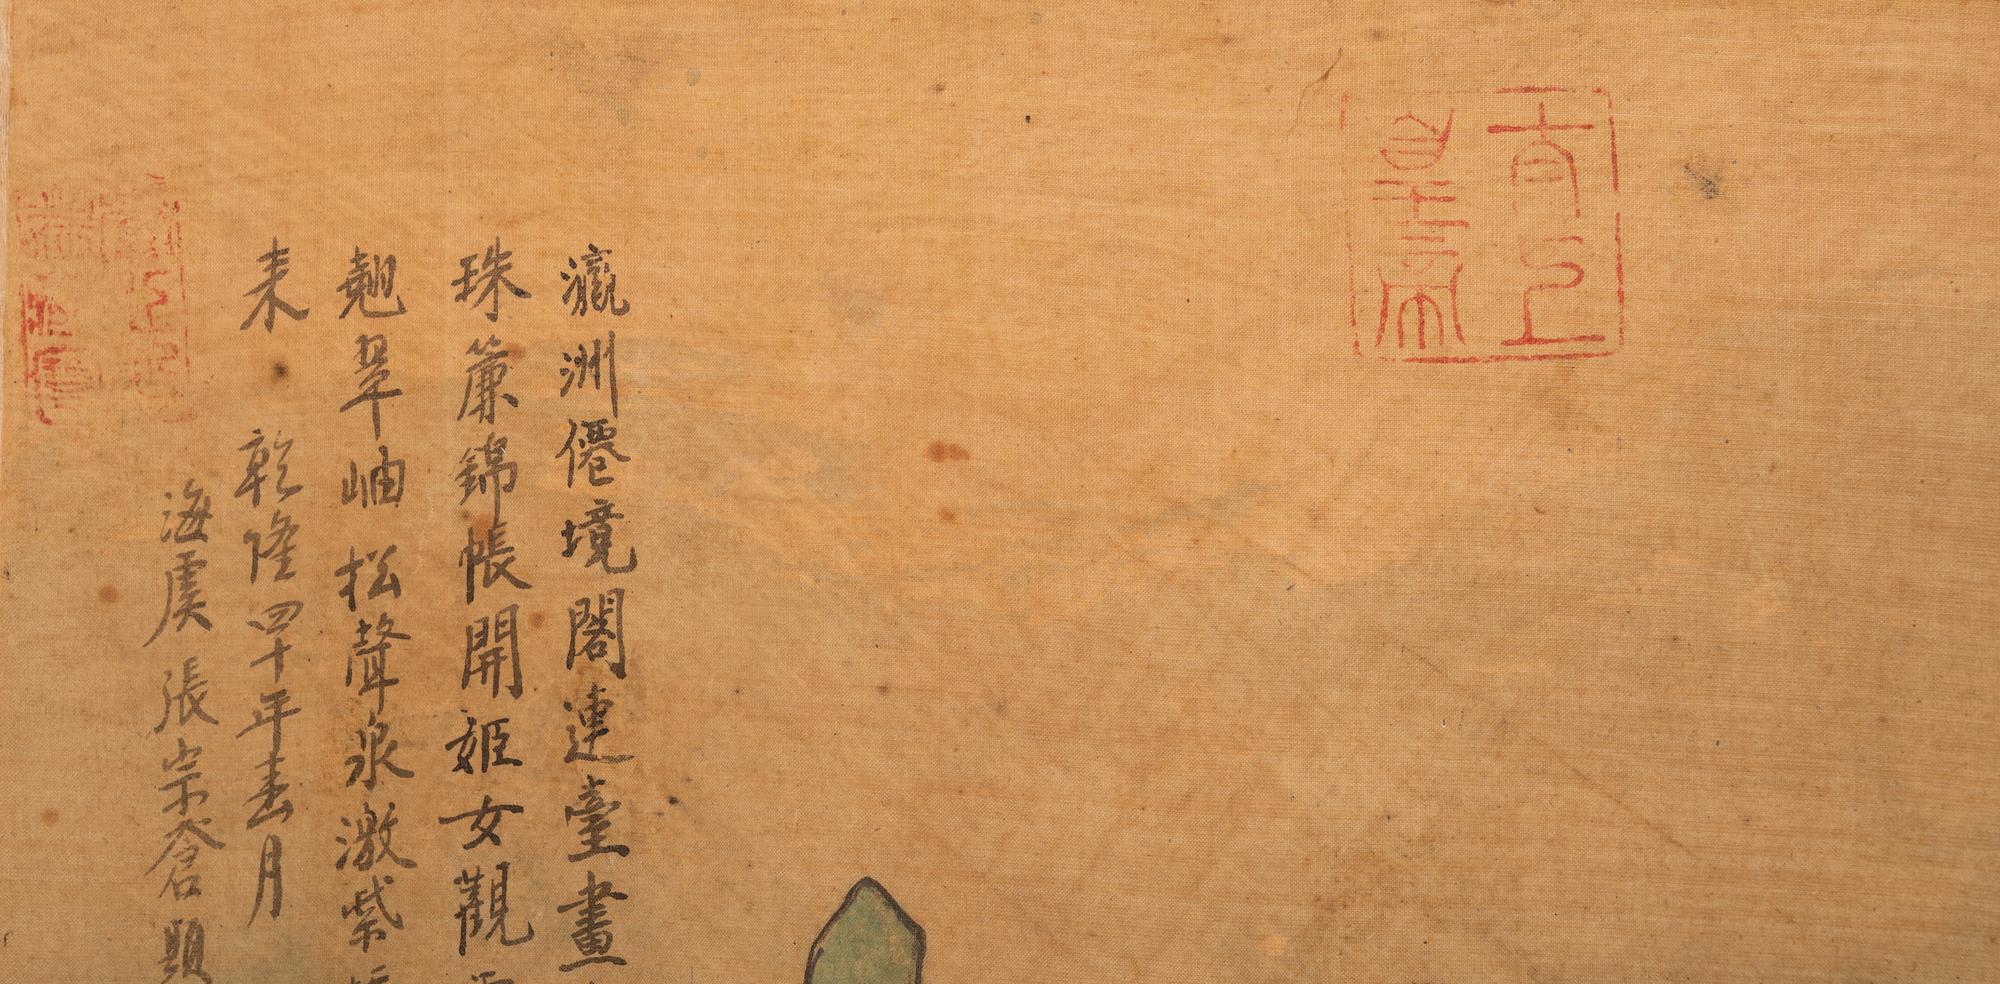 瀛洲僊境閣連臺畫
珠簾錦帳開姬女觀
翹翠岫松聲泉激紫
来
乾隆四十年春月
海虞張宗蒼題